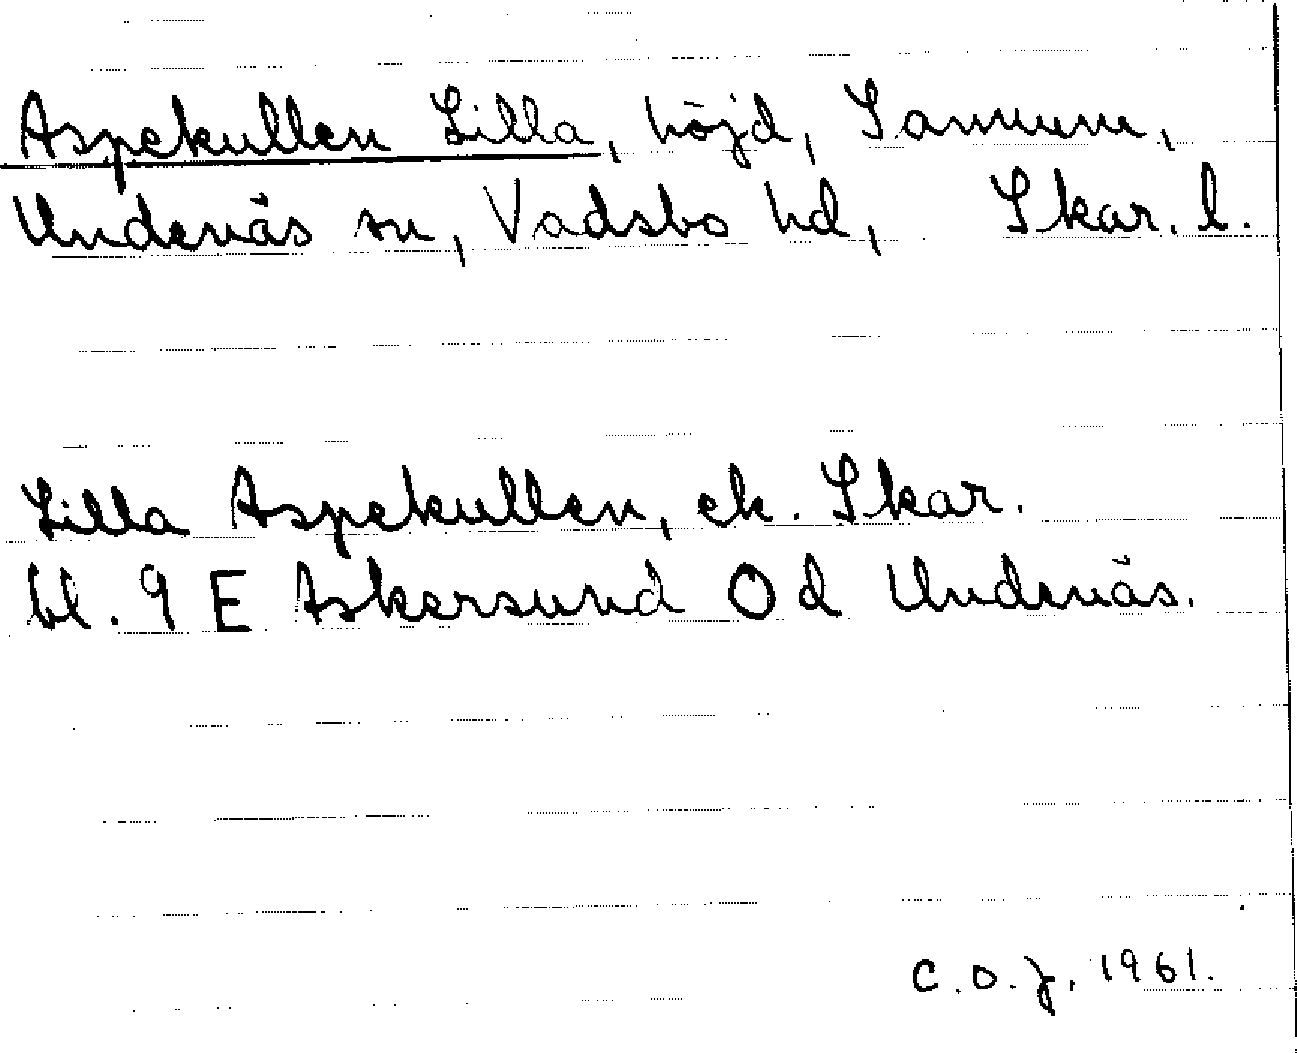 Aspekullen Lilla, höjd, Sannum,
Undenäs sn, Vadsbo hd, Skar. l.
Lilla Aspekullen, ek. Skar.
bl. 9 E Askersund O d Undenäs.
C.O.J. 1961.